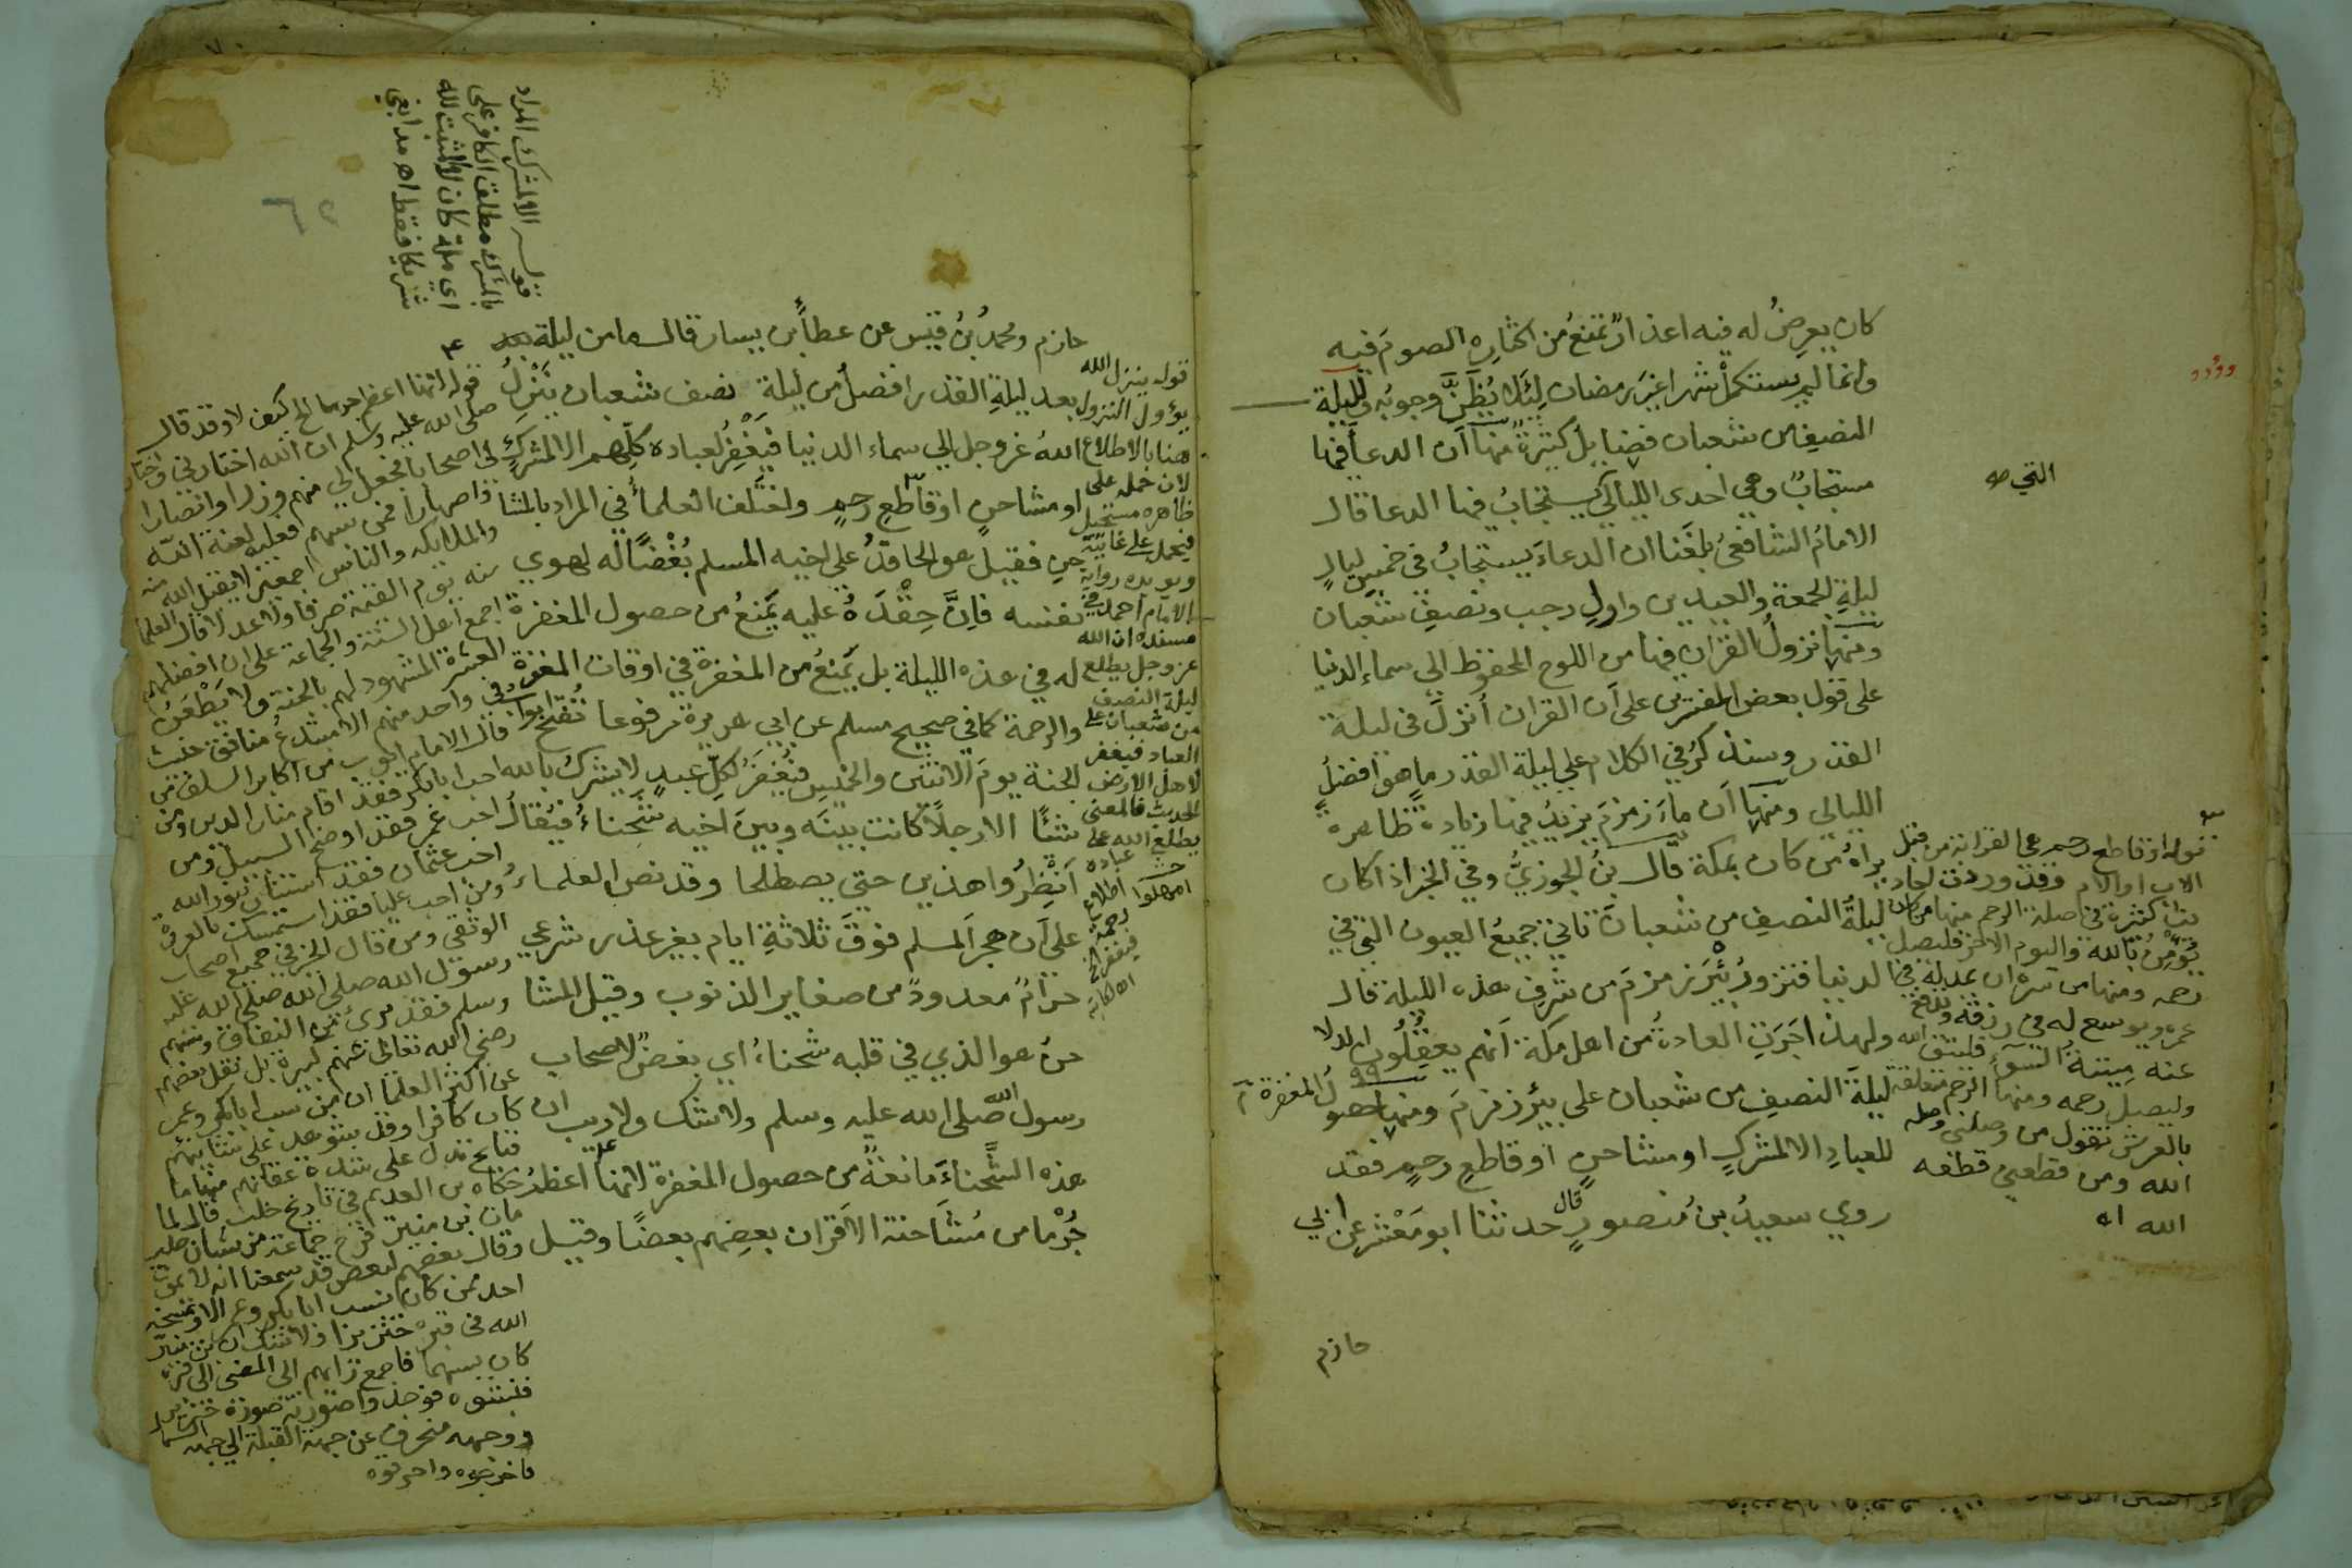 كان يعرض له فيه اعذارٌ تمنع من اكثاره الصوم فيه
وانما لم يستكمل شهرا غير رمضان لئلا يُظَنَّ وجوبُه ولليلة
النصف من شعبان فضايل كثيرة منها أن الدعأ فيها
مستجابٌ وهي احدى الليالي يستجابُ فيها الدعا قال
التي صه
الامامُ الشافعيُ بلغَنا ان الدعاءَ يستجابُ في خمسِ ليالٍ
ليلةِ الجمعة والعيدين واولِ رجب ونصفِ شعبان
ومنها نزولُ القران فيها من اللوح المحفوظ الى سماء الدنيا
على قول بعض المفسرين على أن القران أُنزلَ في ليلة
القدر وسنذكرُ في الكلام على ليلة القدر ما هو أفضلُ
الليالي ومنها أن ماءَ زمزمَ يزيدُ فيها زيادةً ظاهرة
يراهُ من كان بمكة قال بنُ الجوزيُّ وفي الخبر اذا كان
ليلةُ النصفِ من شعبانَ تاتي جميعُ العيون التي في
الدنيا فتزورُ بئرَ زمزمَ من شرفِ هذه الليلة قال
ولهذا جَرَتِ العادةُ من اهل مكة أنهم يغتسلون
ليلةَ النصفِ من شعبان على بيرِ زمزمَ ومنها حصولُ المغفرة
للعبادِ الا لمشركٍ او مشاحنٍ أو قاطعِ رحمٍ فقد
روي سعيدُ بنُ منصورٍ قال حدثنا ابو مَعْشرٍ عن ابي
حازم
قوله او قاطع رحم هي القرابة من قبل
الاب او الام وقد وردت احاديث
كثيرة في صلة الرحم منها من كان
يؤمن بالله واليوم الاخر فليصل
رحمه ومنها من سره ان يمد له في
عمره ويوسع له في رزقه ويدفع
عنه ميتة السوء فليتق الله
وليصل رحمه ومنها الرحم متعلقة
بالعرش تقول من وصلني وصله
الله ومن قطعني قطعه
الله اه
حازم ومحمدُ بنُ قيس عن عطأ بن يسار قال ما من ليلة
بعد ليلةِ القدر افضلُ من ليلة نصف شعبان يَنْزِلُ
اللهُ عز وجل الى سماء الدنيا فيَغْفِرُ لعباده كلِّهم الا المشركٍ
او مشاحنٍ او قاطعِ رحمٍ واختلف العلمأُ في المراد بالمشا
حنِ فقيل هو الحاقدُ على اخيه المسلم بُغْضاً له لهوي
نفسه فإنَّ حِقْدَهُ عليه يَمنعُ من حصول المغفرة
له في هذه الليلة بل يَمنعُ من المغفرة في اوقات المغفرة
والرحمة كما في صحيح مسلم عن ابي هريرة مرفوعا تُفتَح ابواب
الجنة يومَ الاثنين والخميس فيُغْفَرُ لكلِّ عبدٍ لا يشركُ بالله
شيْئًا الا رجلًا كانت بينَه وبينَ اخيه شحناءُ فيُقالُ
أَنْظِرُوا هذين حتي يصطلحا وقد نص العلماءُ
على أن هجرَ المسلم فوقَ ثلاثةِ ايام بغير عذر شرعي
حرامٌ معدودٌ من صغاير الذنوب وقيل المشا
حنُ هو الذي في قلبه شحناءُ اي بغضٌ لاصحاب
رسول الله صلى الله عليه وسلم ولا شك ولا ريب ان
هذه الشَّحناءَ مانعةٌ من حصول المغفرة لانها اعظمُ
جُرْما من مُشَاحنة الأقران بعضِهم بعضًا وقيل
قوله الا لمشرك المراد
بالمشرك مطلق الكافر على
اي ملة كان لا المثبت لله
شريكا فقط اه مدابغي
قوله ينزل الله
يؤول النزول
هنا بالاطلاع
لان حمله على
ظاهره مستحيل
فيحمل على غايته
ويويده رواية
الامام احمد في
مسنده ان الله
عز وجل يطلع
ليلة النصف
من شعبان على
العباد فيغفر
لاهل الارض
الحديث فالمعنى
يطلع الله على
عباده
اطلاع
رحمة
فيغفر الخ
امهلوا
قوله لانها اعظم جرما الخ كيف لا وقد قال
صلى الله عليه وسلم ان الله اختارني واختار
لي اصحابا فجعل لي منهم وزرا وانصارا
واصهارا فمن سبهم فعليه لعنة الله
والملايكه والناس اجمعين لا يقبل الله
منه يوم القيمة صرفا ولا عدلا قال العلما
اجمع اهل السنة والجماعة على ان افضلهم
العشرة المشهود لهم بالجنة ولا يَطْعَنُ
في واحد منهم الا مبتدع منافق خبيث
قال الامام ايوب من اكابر السلف من
احب ابا بكر فقد اقام منار الدين ومن
احب عمر فقد اوضح السبيل ومن
احب عثمان فقد استنار بنور الله
ومن احب عليا فقد استمسك بالعروة
الوثقى ومن قال الخير في جميع اصحاب
رسول الله صلى الله عليه
وسلم فقد برئ من النفاق
رضي الله تعالى عنهم
عن اكثر العلما ان من سب ابا بكر وعمر
كان كافرا وقد
تدل على شدة عقابهم منها ما
حكاه بن العديم في تاريخ حلب قال لما
مات بن منير خرج جماعة من شبان حلب
وقال بعضهم لبعض قد سمعنا انه لا يموت
احد ممن كان يسب ابا بكر وعمر الا ويمسخه
الله في قبره خنزيرا ولا شك ان بن منير
كان يسبهما فاجمع رايهم الى المضي الى قبره
فنبشوه فوجدوا صورته صورة خنزير
ووجهه منحرف عن جهة القبلة الى جهة الشمال
فاخرجوه واحرقوه